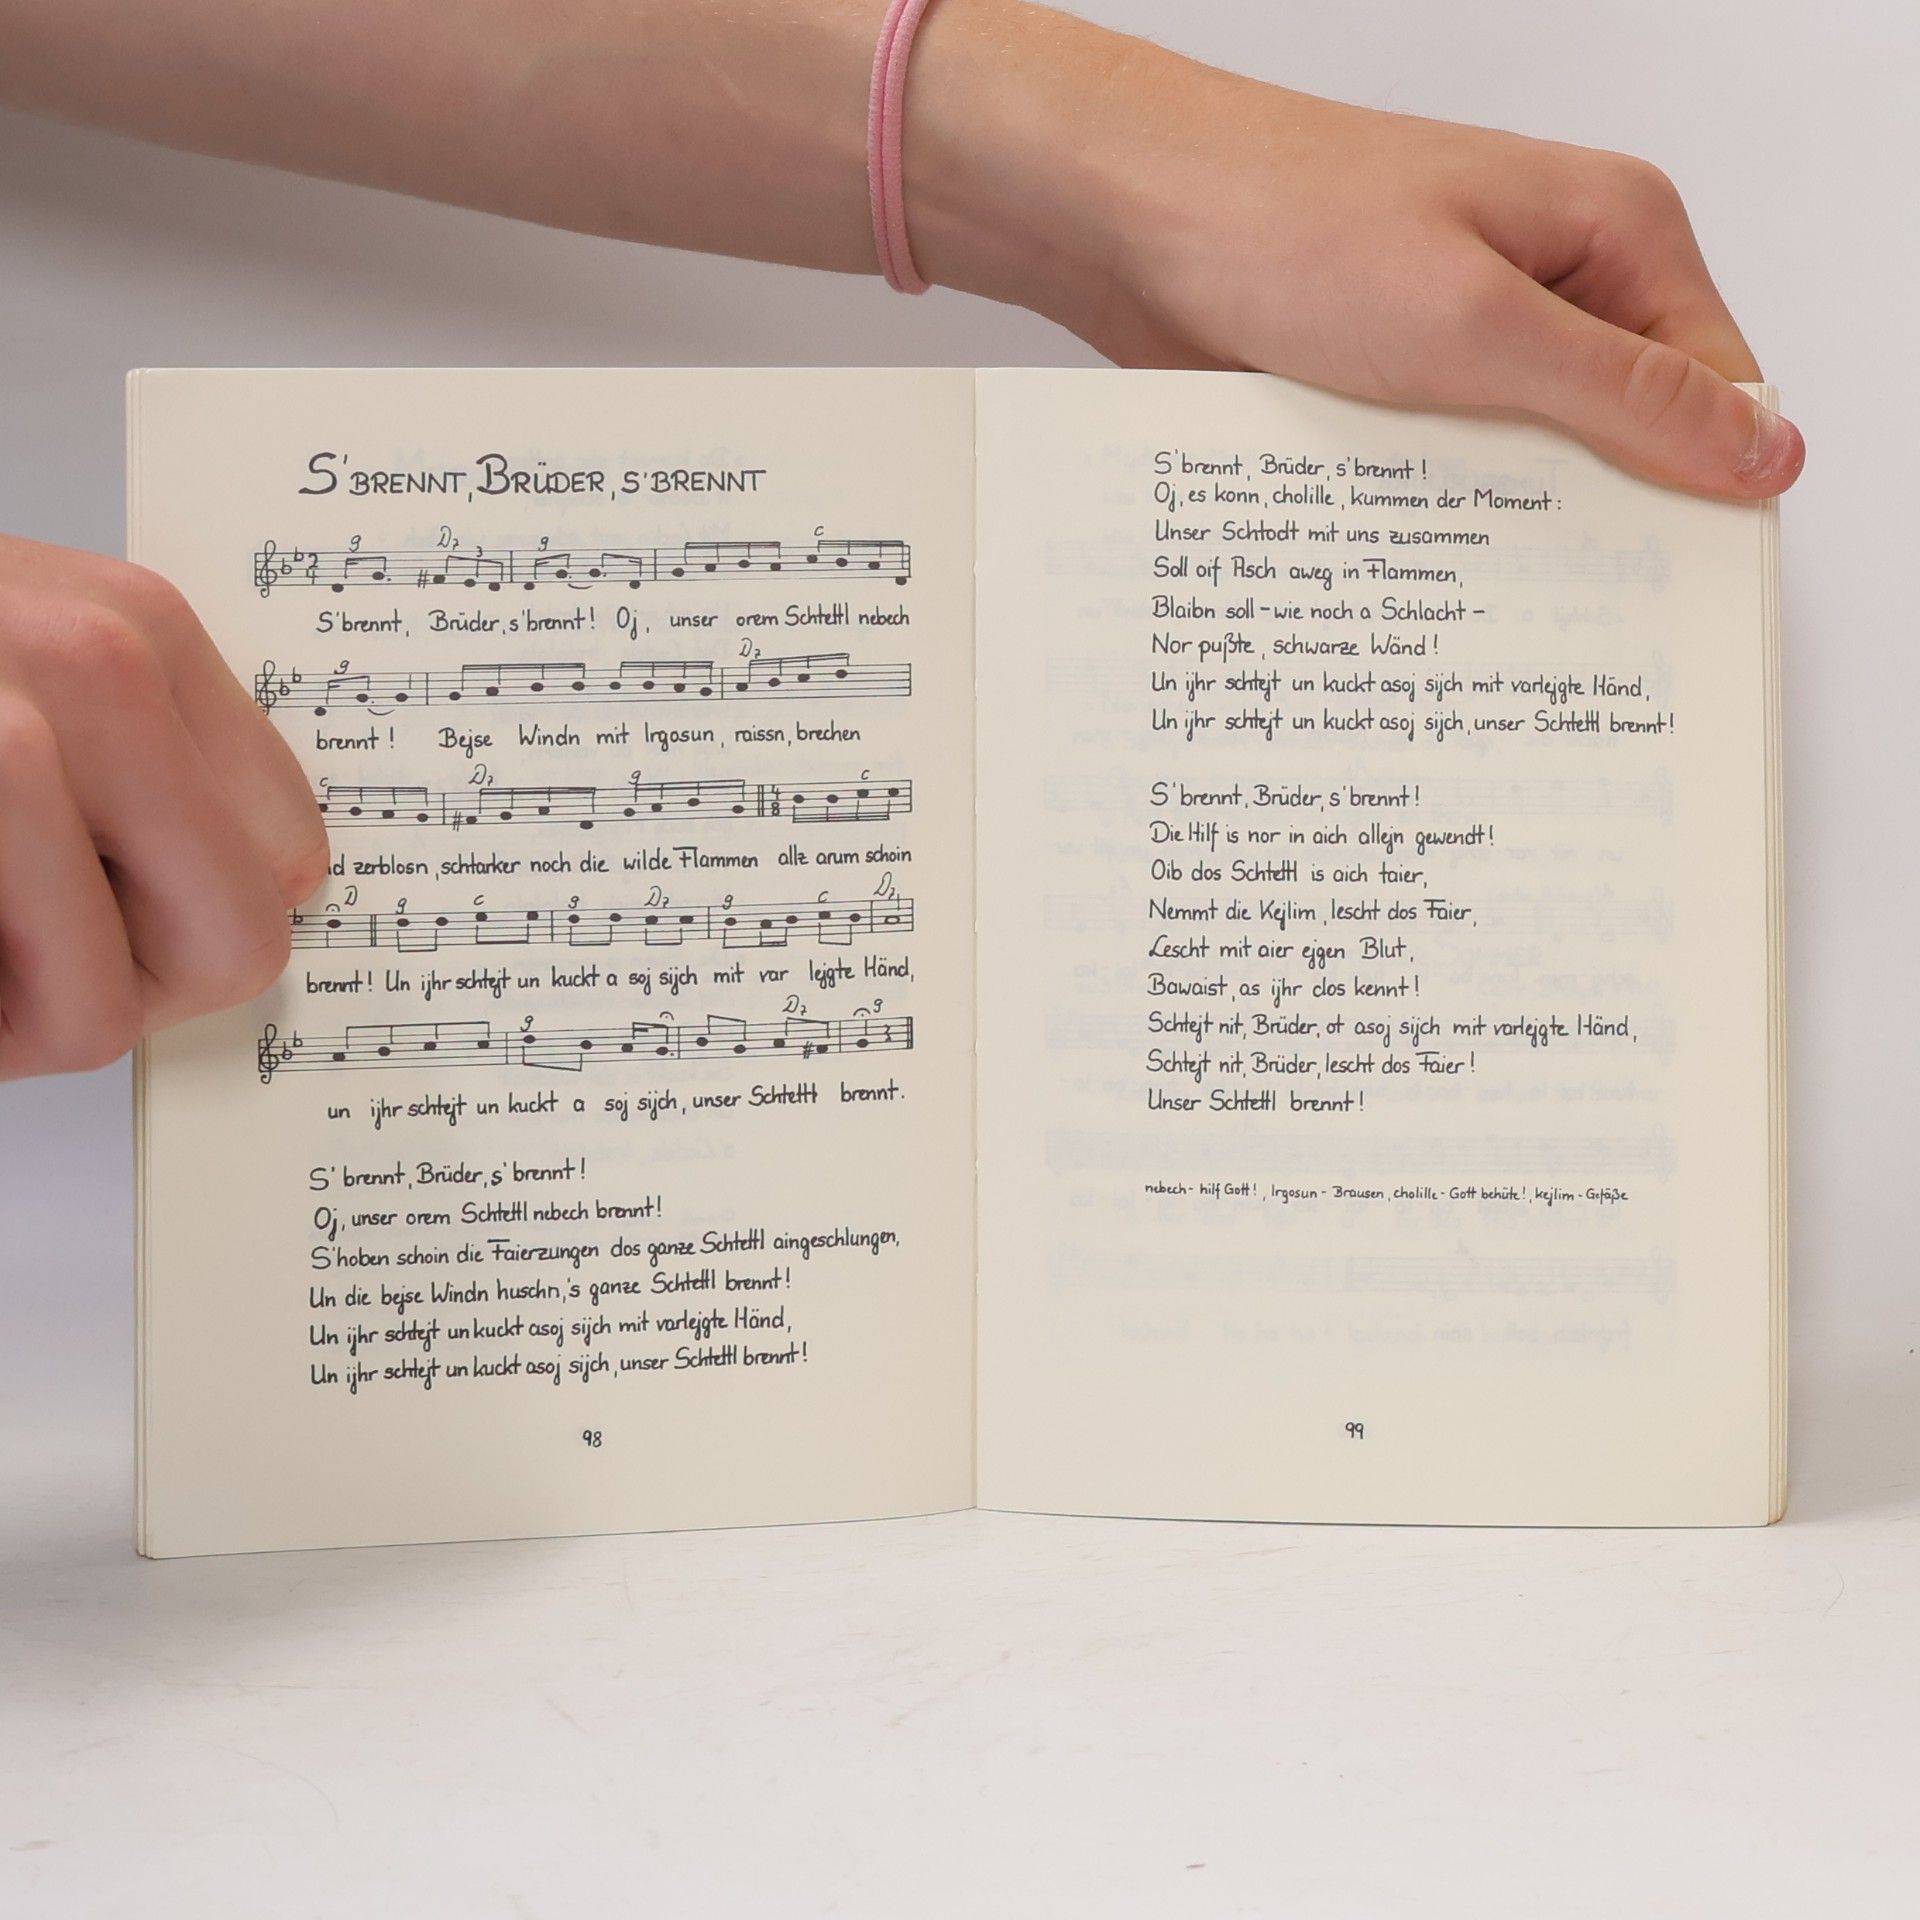 S'BRENNT, BRÜDER, S'BRENNT
g D7 3 g C
S'brennt, Brüder, s'brennt! Oj, unser orem Schtettl nebech
g D7
brennt! Bejse Windn mit Irgosun, raissn, brechen
c D7 g c
zerblosn, schtarker noch die wilde Flammen allz arum schoin
D g c g D7 g c D7
brennt! Un ijhr schtejt un kuckt a soj sijch mit var lejgte Händ,
g D7 g
un ijhr schtejt un kuckt a soj sijch, unser Schtettl brennt.
S'brennt, Brüder, s'brennt!
Oj, unser orem Schtettl nebech brennt!
S'hoben schoin die Faierzungen dos ganze Schtettl aingeschlungen,
Un die bejse Windn huschn, 's ganze Schtettl brennt!
Un ijhr schtejt un kuckt asoj sijch mit varlejgte Händ,
Un ijhr schtejt un kuckt asoj sijch, unser Schtettl brennt!
98
S'brennt, Brüder, s'brennt!
Oj, es konn, cholille, kummen der Moment:
Unser Schtodt mit uns zusammen
Soll oif Asch aweg in Flammen,
Blaibn soll – wie noch a Schlacht –
Nor pußte, schwarze Wänd!
Un ijhr schtejt un kuckt asoj sijch mit varlejgte Händ,
Un ijhr schtejt un kuckt asoj sijch, unser Schtettl brennt!
S'brennt, Brüder, s'brennt!
Die Hilf is nor in aich allejn gewendt!
Oib dos Schtettl is aich taier,
Nemmt die Kejlim, lescht dos Faier,
Lescht mit aier ejgen Blut,
Bawaist, as ijhr dos kennt!
Schtejt nit, Brüder, ot asoj sijch mit varlejgte Händ,
Schtejt nit, Brüder, lescht dos Faier!
Unser Schtettl brennt!
nebech - hilf Gott!, Irgosun - Brausen, cholille - Gott behüte!, kejlim - Gefäße
99